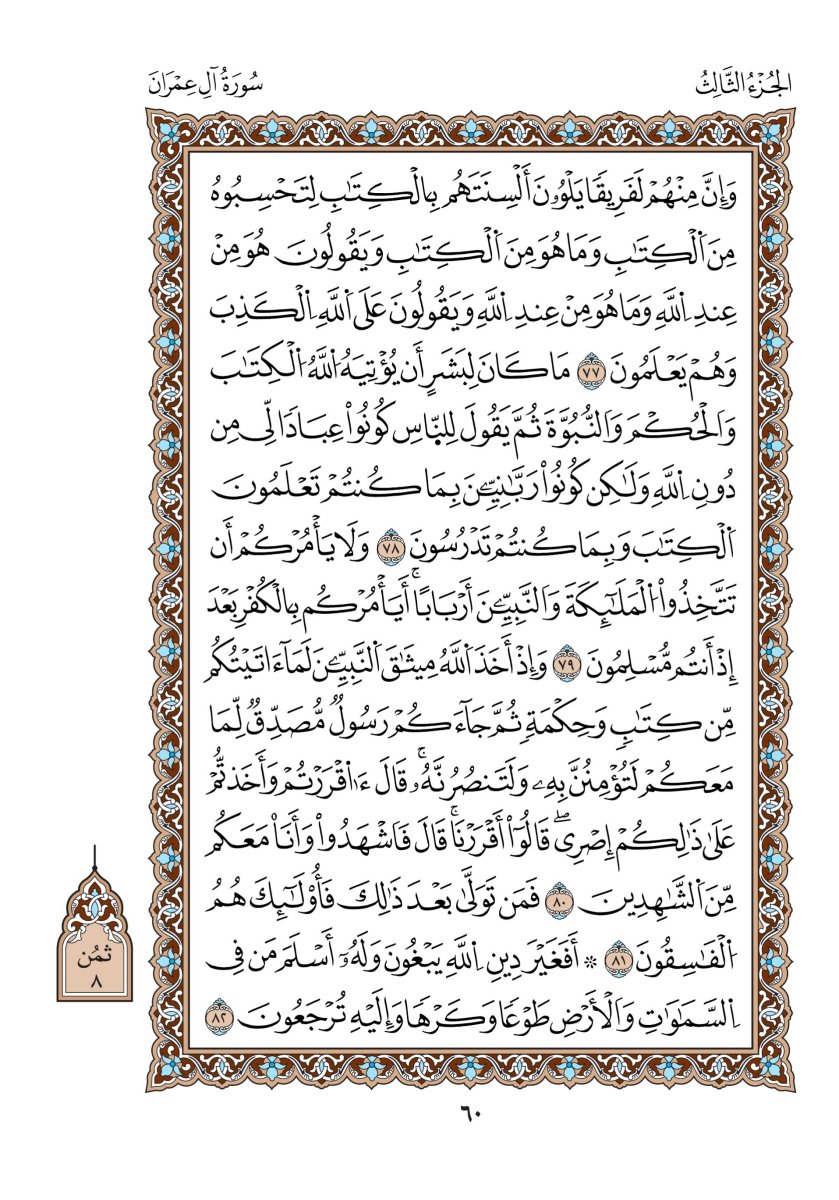 الجُزْءُ الثَّالِثُ
سُورَةُ آلِ عِمْرَانَ
وَإِنَّ مِنْهُمْ لَفَرِيقٗا يَلْوُۥنَ أَلْسِنَتَهُم بِالْكِتَٰبِ لِتَحْسِبُوهُ
مِنَ اَلْكِتَٰبِ وَمَا هُوَ مِنَ اَلْكِتَٰبِ وَيَقُولُونَ هُوَ مِنْ
عِندِ اِللَّهِ وَمَا هُوَ مِنْ عِندِ اِللَّهِ وَيَقُولُونَ عَلَى اَللَّهِ اِلْكَذِبَ
وَهُمْ يَعْلَمُونَ ٧٧ مَا كَانَ لِبَشَرٍ أَن يُؤْتِيَهُ اُللَّهُ اُلْكِتَٰبَ
وَالْحُكْمَ وَالنُّبُوَّةَ ثُمَّ يَقُولَ لِلنّ۪اسِ كُونُواْ عِبَادٗا لِّى مِن
دُونِ اِللَّهِ وَلَٰكِن كُونُواْ رَبَّٰنِيِّۦنَ بِمَا كُنتُمْ تَعْلَمُونَ
اَلْكِتَٰبَ وَبِمَا كُنتُمْ تَدْرُسُونَ ٧٨ وَلَا يَأْمُرْكُمْ أَن
تَتَّخِذُواْ اُلْمَلَٰٓئِكَةَ وَالنَّبِيِّۦنَ أَرْبَابًاۚ أَيَأْمُرْكُم بِالْكُفْرِ بَعْدَ
إِذْ أَنتُم مُّسْلِمُونَ ٧٩ وَإِذْ أَخَذَ اَللَّهُ مِيثَٰقَ اَلنَّبِيِّۦنَ لَمَآ ءَاتَيْتُكُم
مِّن كِتَٰبٖ وَحِكْمَةٖ ثُمَّ جَآءَكُمْ رَسُولٞ مُّصَدِّقٞ لِّمَا
مَعَكُمْ لَتُؤْمِنُنَّ بِهِۦ وَلَتَنصُرُنَّهُۥۚ قَالَ ءَا۬قْرَرْتُمْ وَأَخَذتُّمْ
عَلَىٰ ذَٰلِكُمْ إِصْرِىۖ قَالُوٓاْ أَقْرَرْنَاۚ قَالَ فَاشْهَدُواْ وَأَنَا۠ مَعَكُم
مِّنَ اَلشَّٰهِدِينَ ٨٠ فَمَن تَوَلَّىٰ بَعْدَ ذَٰلِكَ فَأُوْلَٰٓئِكَ هُمُ
اُلْفَٰسِقُونَ ٨١ * أَفَغَيْرَ دِينِ اِللَّهِ يَبْغُونَ وَلَهُۥٓ أَسْلَمَ مَن فِى
اِلسَّمَٰوَٰتِ وَالْأَرْضِ طَوْعٗا وَكَرْهٗا وَإِلَيْهِ تُرْجَعُونَ ٨٢
ثمُن
٨
٦٠